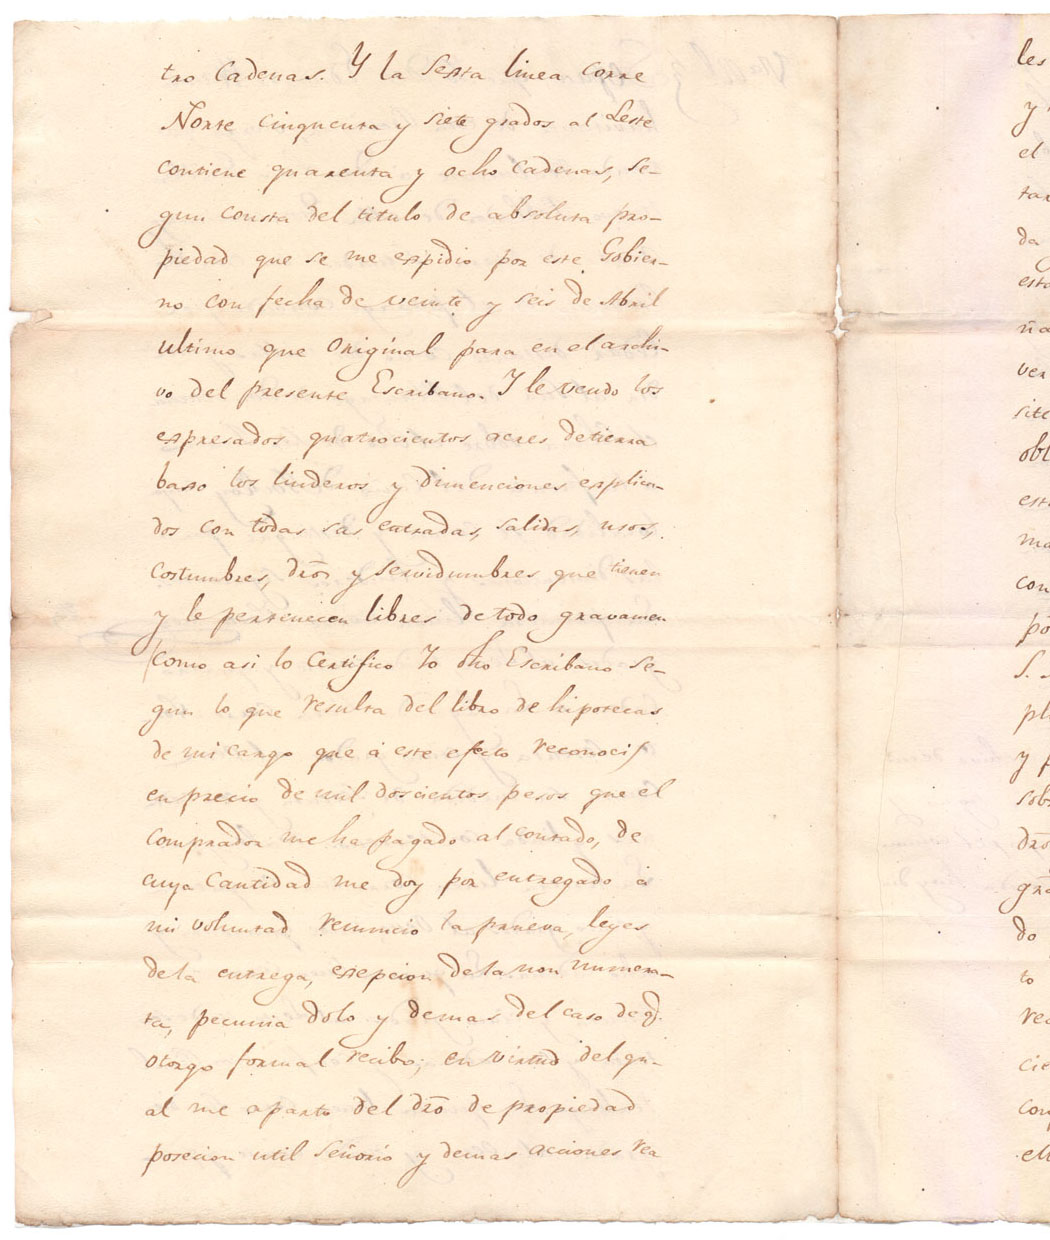 tro Cadenas. Y la Sexta linea corre
Norte cinquenta y siete grados al Leste
contiene quarenta y ocho cadenas, se-
gun consta del titulo de absoluta pro-
piedad que se me expidio por este Gobier-
no con fecha de veinte y seis de Abril
ultimo que Original para en el archi-
vo del presente Escribano. Y le vendo los
expresados quatrocientos acres de tierra
baxo los linderos y dimenciones explica-
dos con todas sas entradas, salidas, usos,
costumbres, dros y servidumbres que tienen
y le pertenecen libres de todo gravamen
como asi lo Certifico Yo dho Escribano se-
gun lo que resulta del libro de hipotecas
de mi cargo que á este efecto reconoci
en precio de mil doscientos pesos que el
comprador me ha pagado al contado, de
cuya Cantidad me doy por entregado á
mi voluntad renuncio la prueva, leyes
de la entrega, esepcion de la non numera-
ta, pecunia dolo y demas del caso de q.
otorgo formal recibo; en virtud del qu-
al me aparto del dro de propiedad
posecion util Señorio y demas acciones rea
les
y
el
tar
da
esta
ña
ver
site
obl
est
ma
con
po
S.
pl
y
sob
dro
gra
do
to
rec
cie
con
el